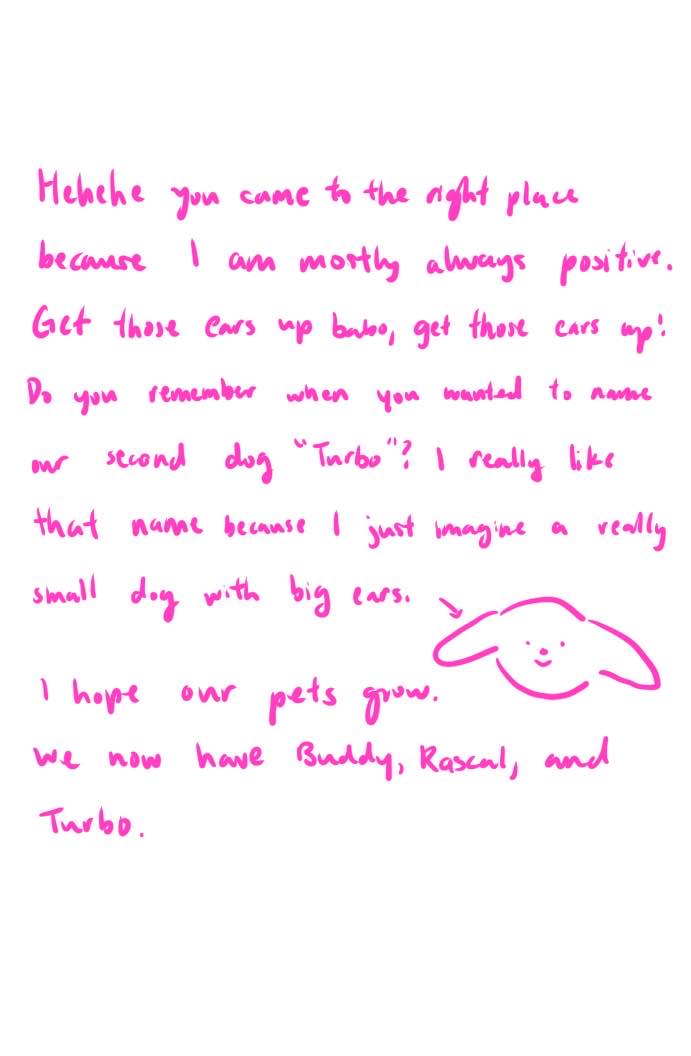 Hehehe you came to the right place
because I am mostly always positive.
Get those ears up babo, get those ears up!
Do you remember when you wanted to name
our second dog "Turbo"? I really like
that name because I just imagine a really
small dog with big ears.
I hope our pets grow.
We now have Buddy, Rascal, and
Turbo.